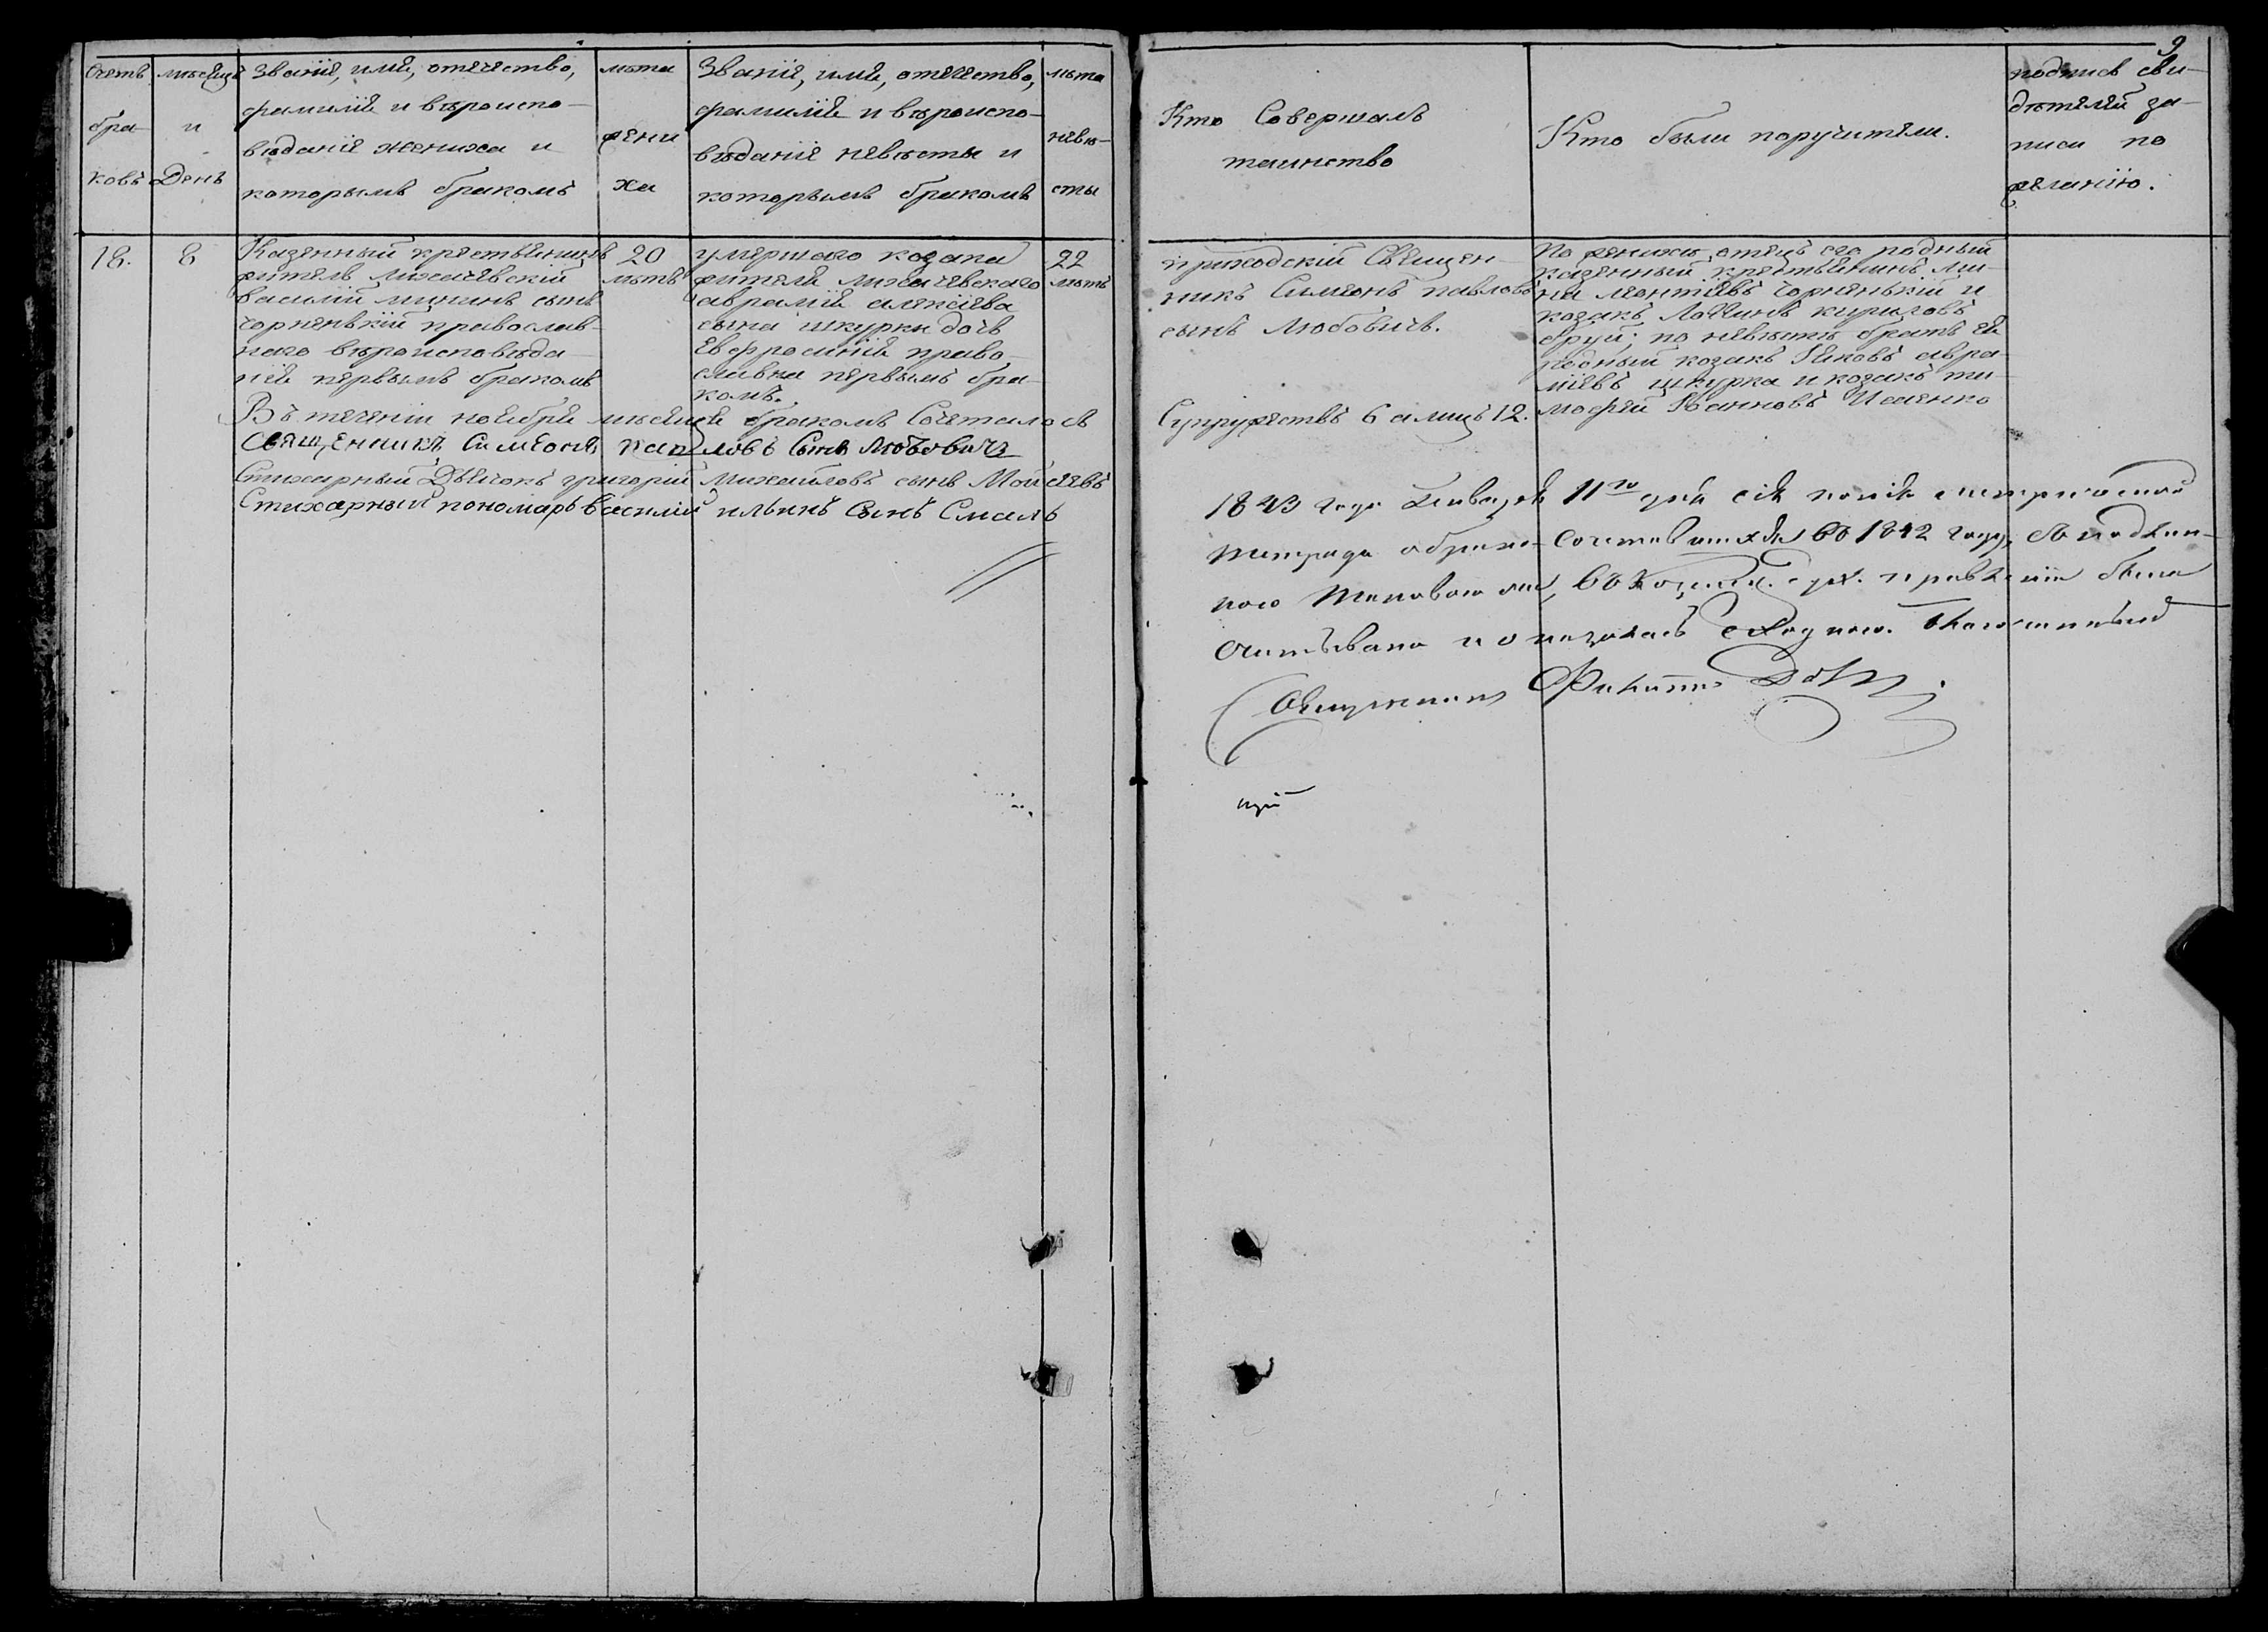 9
Счетъ бра- ковъ
мѣсяцъ и День
Званіе, имя, отечество,
фамилія и вѣроиспо-
вѣданіе жениха и
которымъ бракомъ
лѣта жени ха
Званіе, имя, отечество,
фамилія и вѣроиспо-
вѣданіе невѣсты и
которымъ бракомъ
лѣта невѣ- сты
Кто Совершалъ
таинство
Кто были поручители.
подпись сви-
дѣтелей за-
писи по
желанію.
18.
8
Казенный крестьянинъ
житель лихачевскій
василій мининъ сынъ
чорненькій православ-
наго вѣроисповѣда-
нія первымъ бракомъ
20
лѣтъ
умершаго козака
жителя лихачевскаго
аврамія алексіева
сына шкурки дочь
Евфросинія право-
славна первымъ бра-
комъ.
22
лѣтъ
приходскій Священ-
никъ Симеонъ павловъ
сынъ Любовичь.
По женихи отецъ его родный
казенный крестьянинъ ми-
на леонтіевъ чорненькій и
козакъ Логинъ кириловъ
бруй; по невѣстѣ братъ ея
родный козакъ Іяковъ авра-
міевъ шкурка и козакъ ти-
мофей Івановъ Исаенко
Въ теченіи ноября мѣсяця бракомъ Сочеталось
Супружествъ 6 а лицъ 12.
Священникъ Симеонъ павловъ Сынъ Любовичъ
Стихарный Дьячокъ григорій михайловъ сынъ Моисеевъ
Стихарный пономарь василий ильинъ Сынъ Смаль
1843 года Января 11го дня сія копія метрической
тетради о брако-сочетавшихся въ 1842 году, съ подлин-
ною таковою же, въ дух. правленіи была
считывана и оказалась сходною. Благочинный
Священникъ Филиппъ